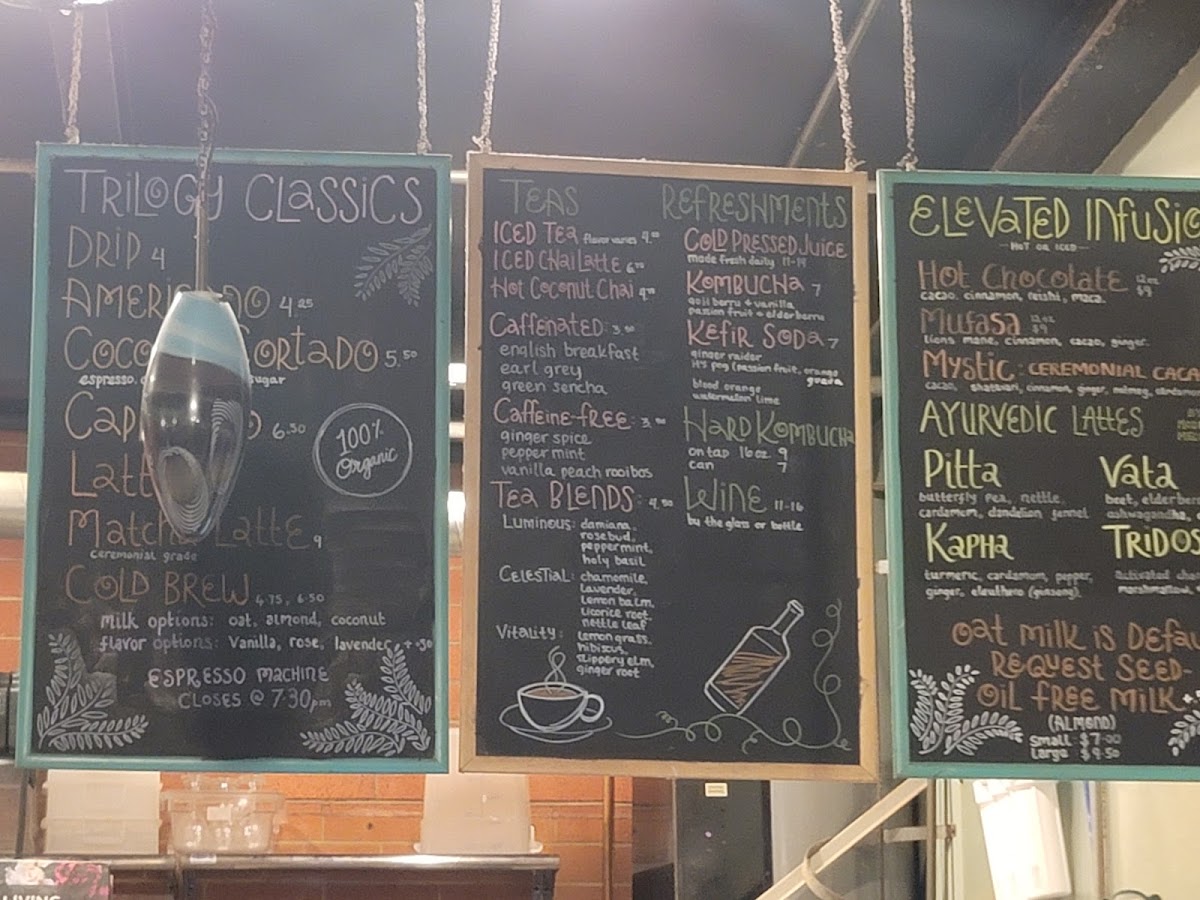 TRILOGY CLASSICS
DRIP 4
4.25
5.50
espresso,
6.50
Latt
Matcha Latte 9
ceremonial grade
COLD BREW 4.75, 6.50
milk options: oat, almond, coconut
flavor options: Vanilla, rose, lavender
ESPRESSO MACHINE
CLOSES @ 7:30pm
100%
Organic
TEAS
ICED TEA flavor varies
ICED CHAI LATTE
Hot Coconut Chai
Caffeinated:
english breakfast
earl grey
green sencha
Caffeine-free:
ginger spice
peppermint
vanilla peach rooibos
TEA BLENDS:
Luminous: damiana,
rosebud,
peppermint,
holy basil
CELESTIAL: chamomile,
lavender,
lemon balm,
licorice root
nettle leaf
Vitality: lemon grass,
hibiscus,
slippery elm,
ginger root
REFRESHMENTS
COLD PRESSED JUICE
made fresh daily 11-14
KOMBUCHA 7
goji berry + vanilla
passion fruit + elderberry
KEFIR SODA 7
ginger raider
(passion fruit, orange
guava
blood orange
watermelon lime
HARD KOMBUCHA
on tap 16oz 9
can 7
WINE 11-16
by the glass or bottle
ELEVATED INFUSIO
HOT OR ICED
Hot Chocolate 12oz $9
cacao, cinnamon, reishi, maca.
Mufasa 12oz $9
lions mane, cinnamon, cacao, ginger.
Mystic: CEREMONIAL CACA
cacao, shatavari, cinnamon, ginger, nutmeg,
AYURVEDIC LATTES
Pitta
butterfly pea, nettle,
cardamom, dandelion fennel
Vata
beet, elderber
ashwagandha,
Kapha
turmeric, cardamom, pepper,
ginger, eleuthero (ginseng).
TRIDOS
activated cha
marshmallow,
oat milk is DEFAU
REQUEST SEED-
OIL FREE MILK.
(ALMOND)
Small $7.50
Large $9.50
LIVING